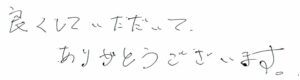 良くしていただいて、
ありがとうございます。